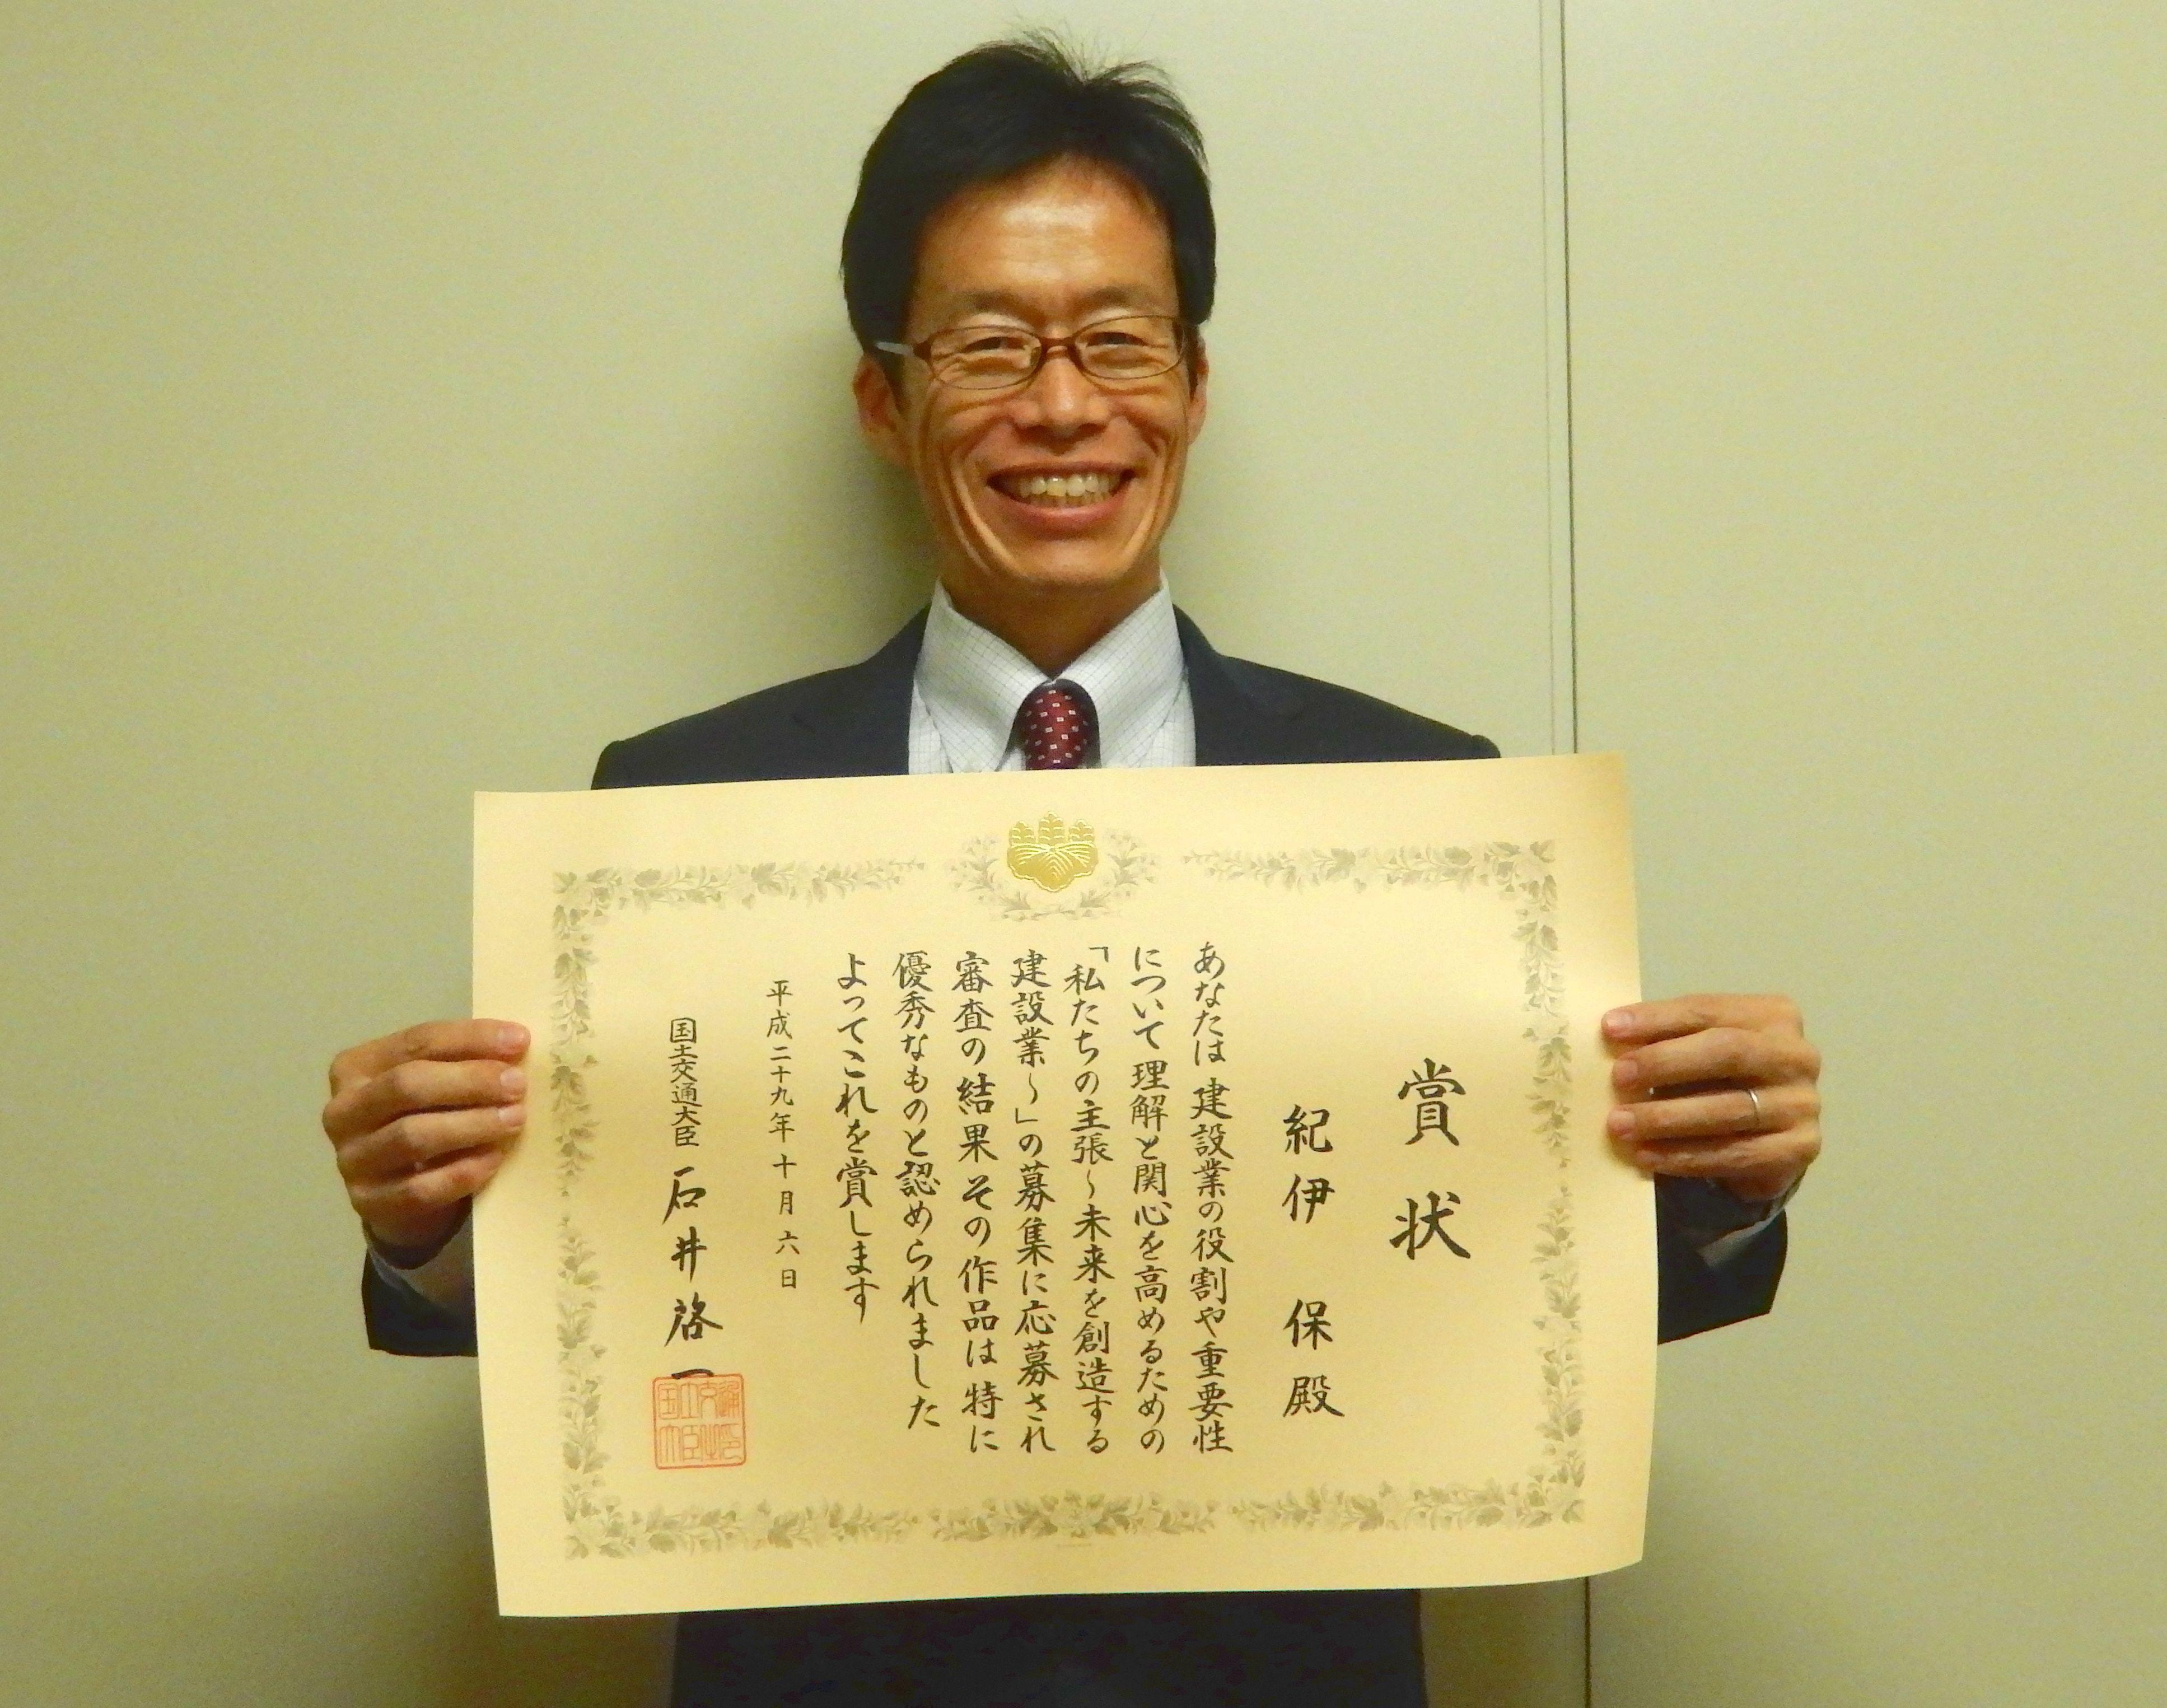 賞状
紀伊 保 殿
あなたは 建設業の役割や重要性
について理解と関心を高めるための
「私たちの主張～未来を創造する
建設業～」の募集に応募され
審査の結果 その作品は 特に
優秀なものと認められました
よってこれを賞します
平成二十九年十月六日
国土交通大臣 石井啓一
国土交通大臣之印